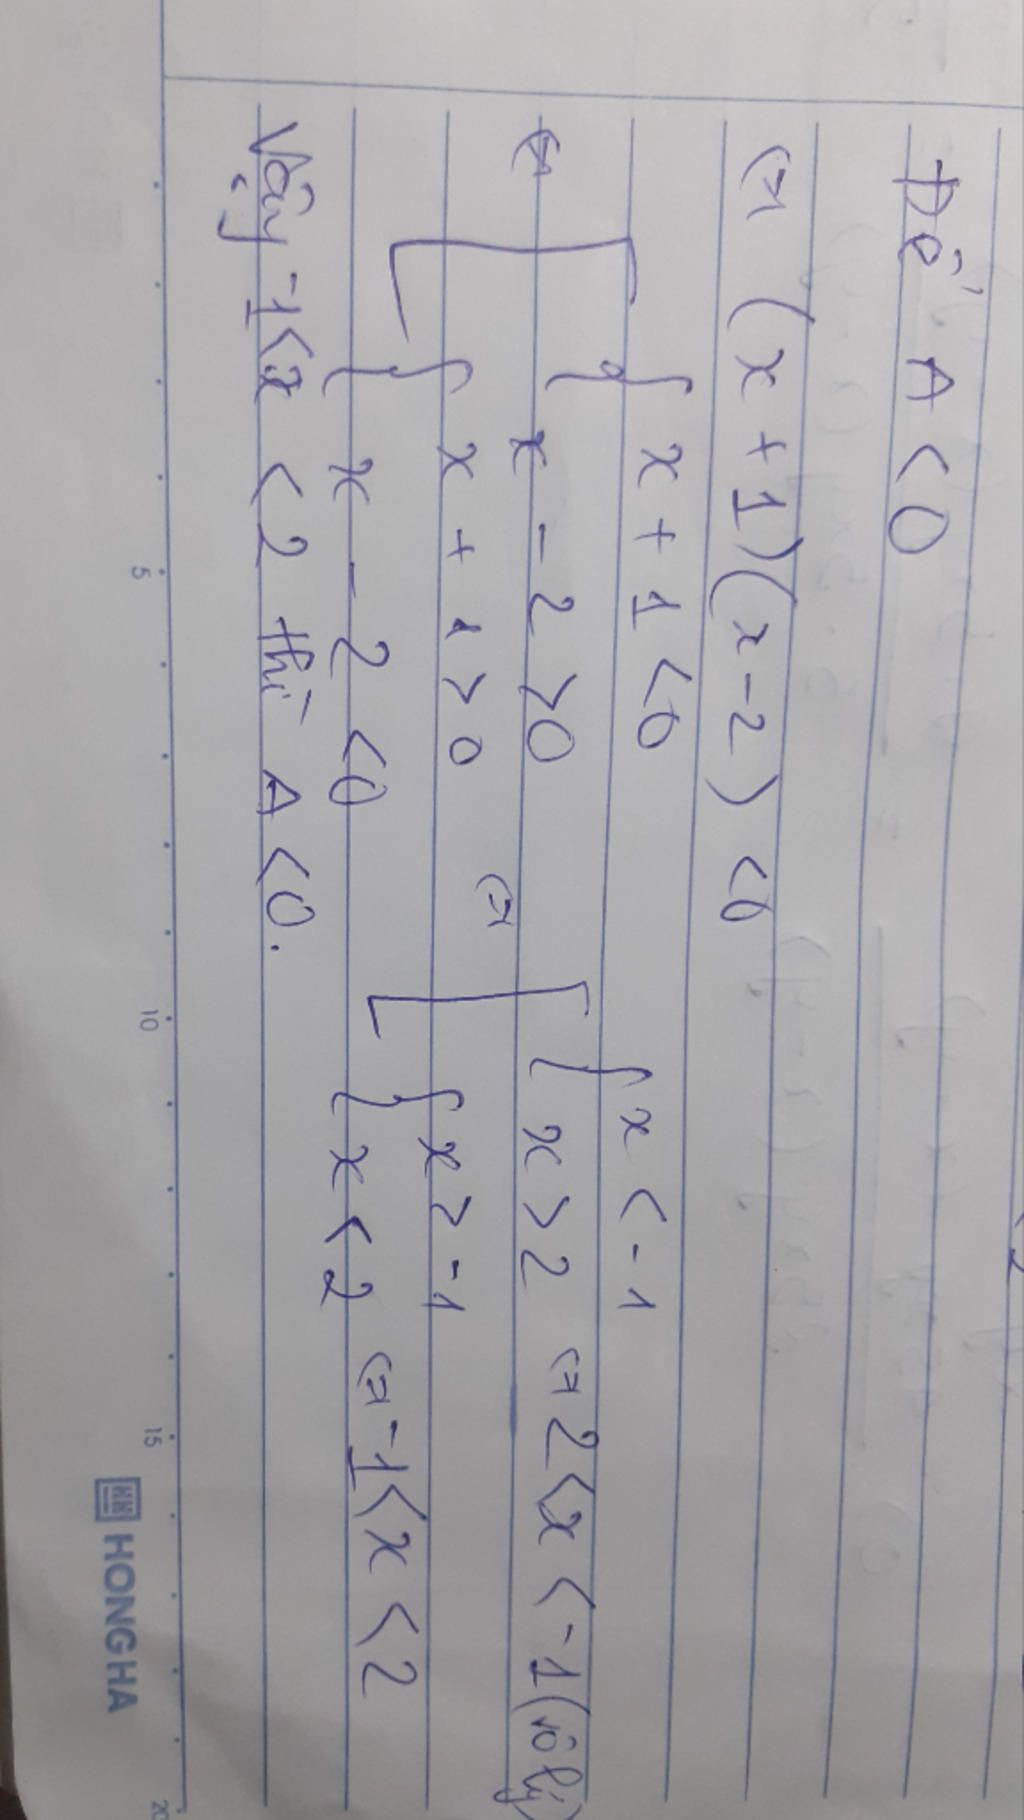 Để A < 0
(=) (x + 1)(x - 2) < 0
(=) [ { x + 1 < 0
x - 2 > 0
{ x + 1 > 0
x - 2 < 0
(=) [ { x < -1
x > 2 (=) 2 < x < -1 (vô lý)
{ x > -1
x < 2 (=) -1 < x < 2
Vậy -1 < x < 2 thì A < 0.
5 10 15 20
HONG HA